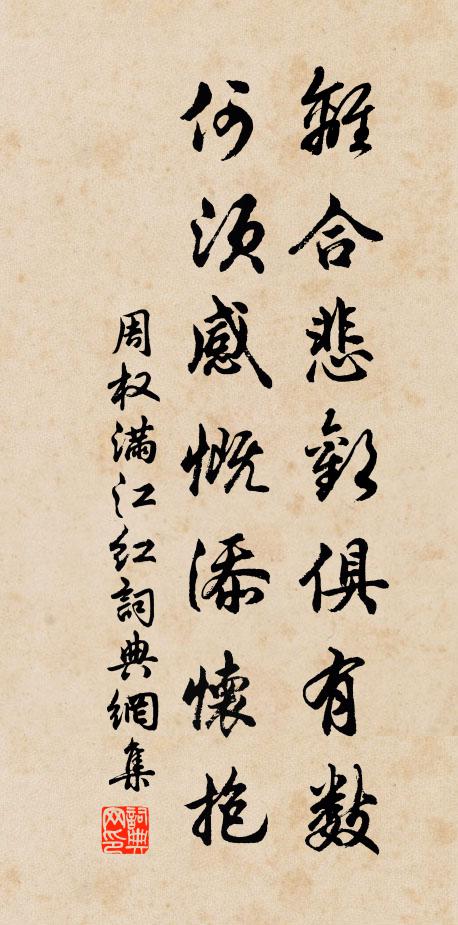 離合悲歡俱有數
何須感慨添懷抱
周权滿江红詞典網集
詞典
网印